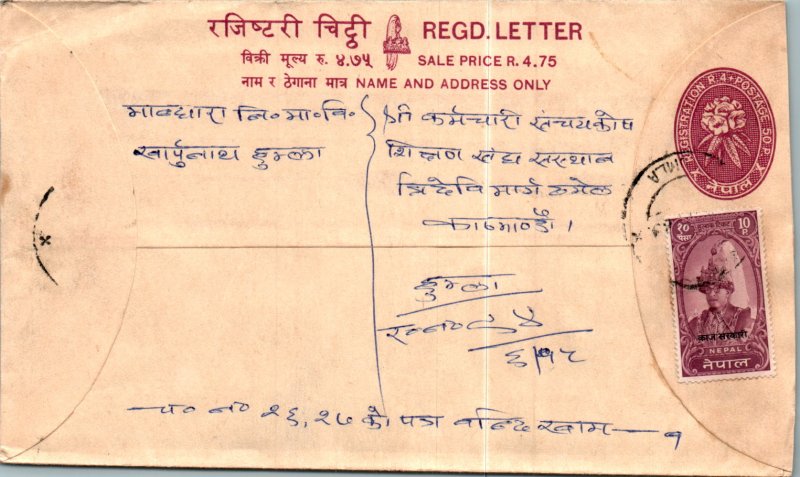 रजिष्टरी चिट्ठी REGD. LETTER
बिक्री मूल्य रु. ४.७५ SALE PRICE R. 4.75
नाम र ठेगाना मात्र NAME AND ADDRESS ONLY
REGISTRATION R.4+POSTAGE 50 P.
नेपाल
मा०वि०
खार्पुनाथ हुम्ला
श्री कर्मचारी संचयकोष
शिक्षण संघ संस्थान
त्रिदेवि मार्ग ठमेल
काठमाण्डौ ।
हुम्ला
च० न० २६, २७ को पत्र वन्दि खाम — १
१० पैसा 10 P.
काज सरकारी
NEPAL
नेपाल